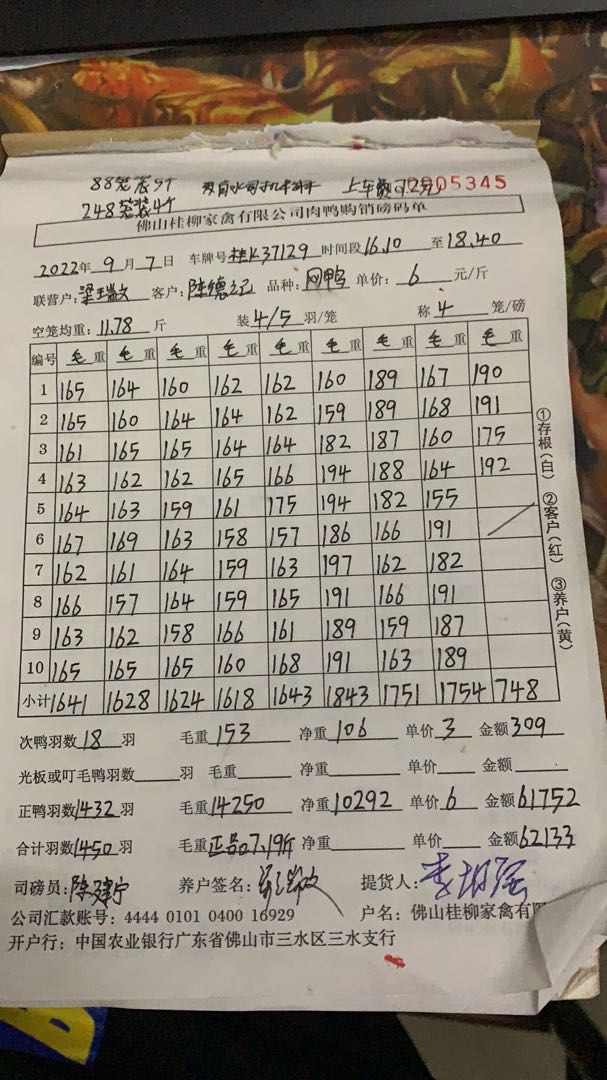 88笼装5个 上车费72元
248笼装4个 0005345
佛山桂柳家禽有限公司肉鸭购销磅码单
2022年 9 月 7 日 车牌号 桂K37129 时间段 16.10 至 18.40
联营户: 梁瑞文 客户: 陈德记 品种: 网鸭 单价: 6 元/斤
空笼均重: 11.78 斤 装 4/5 羽/笼 称 4 笼/磅
编号 毛重 毛重 毛重 毛重 毛重 毛重 毛重 毛重 毛重
1 165 164 160 162 162 160 189 167 190
2 165 160 164 164 162 159 189 168 191
3 161 165 165 164 164 182 187 160 175
4 163 162 162 165 166 194 188 164 192
5 164 163 159 161 175 194 182 155
6 167 169 163 158 157 186 166 191
7 162 161 164 159 163 197 162 182
8 166 157 164 159 165 191 166 191
9 163 162 158 166 161 189 159 187
10 165 165 165 160 168 191 163 189
小计 1641 1628 1624 1618 1643 1843 1751 1754 748
①存根(白) ②客户(红) ③养户(黄)
次鸭羽数 18 羽 毛重 153 净重 106 单价 3 金额 309
光板或叮毛鸭羽数 羽 毛重 净重 单价 金额
正鸭羽数 1432 羽 毛重 14250 净重 10292 单价 6 金额 61752
合计羽数 1450 羽 毛重 正品7.19斤 净重 单价 金额 62133
司磅员: 陈建宁 养户签名: 提货人:
公司汇款账号: 4444 0101 0400 16929 户名: 佛山桂柳家禽有限
开户行: 中国农业银行广东省佛山市三水区三水支行